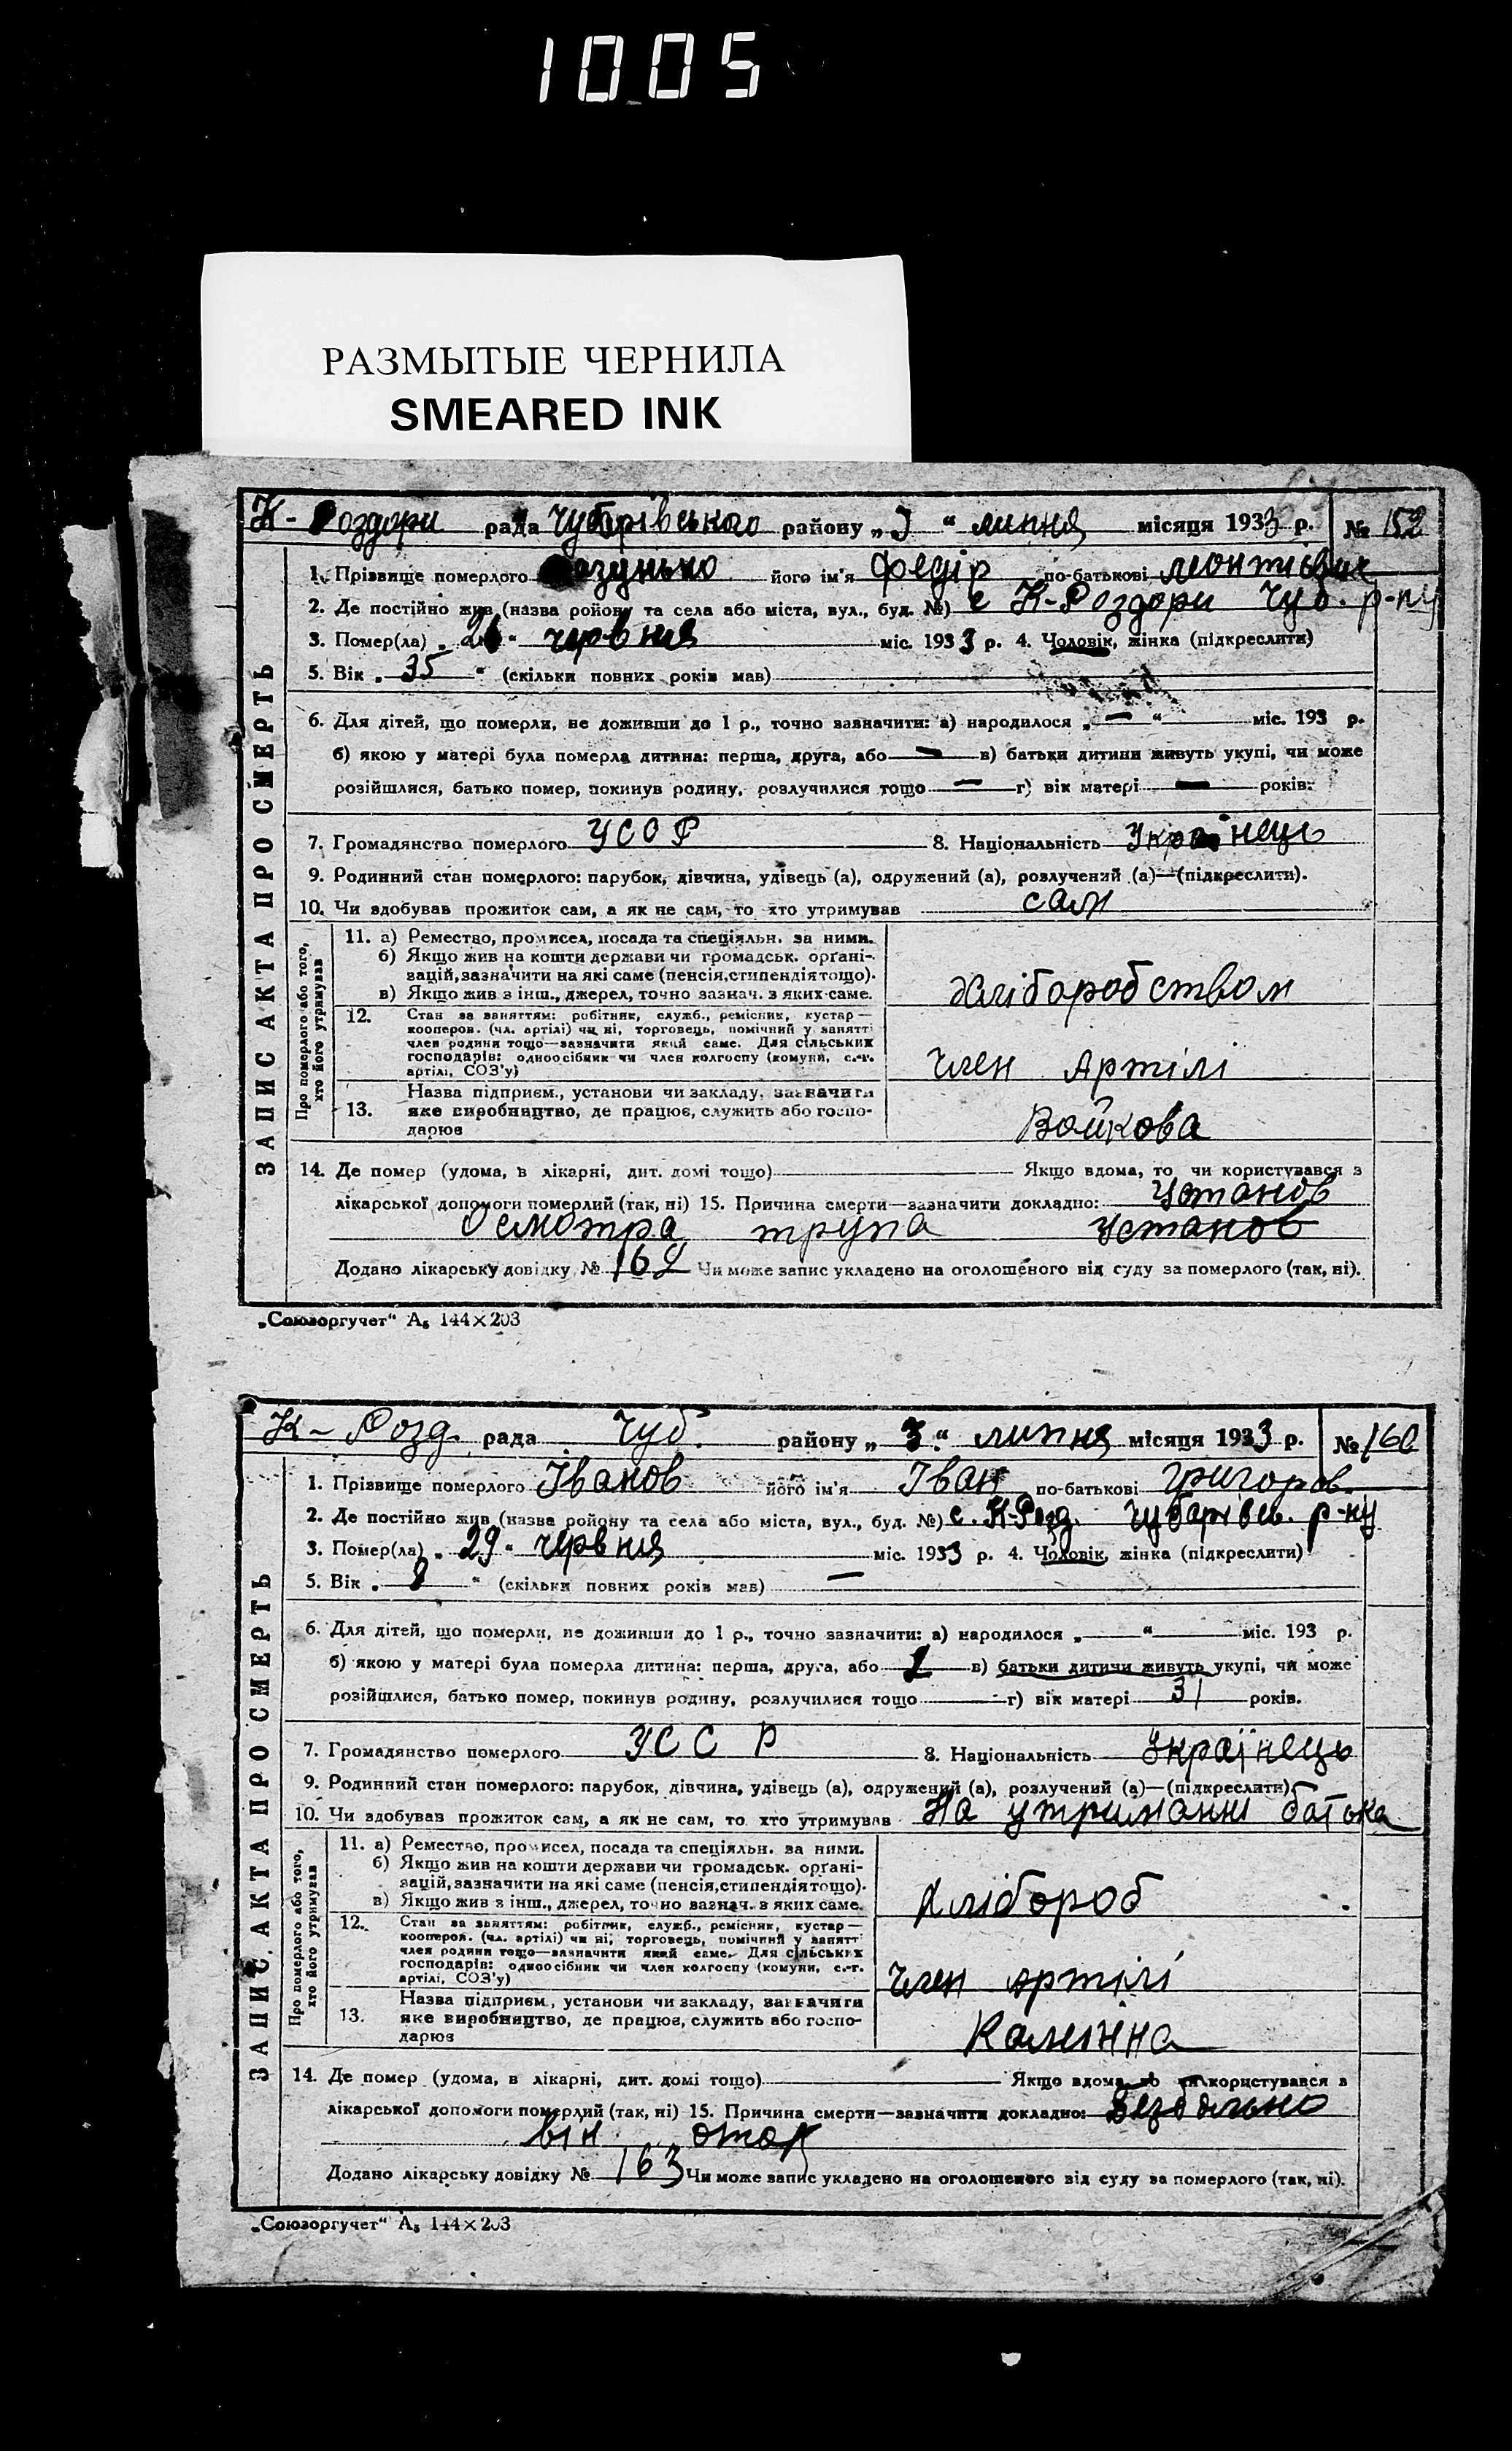 1005
РАЗМЫТЫЕ ЧЕРНИЛА
SMEARED INK
К-Роздори рада Чубарівського району „3“ липня місяця 1933 р. № 152
1. Прізвище померлого його ім'я Федір по-батькові Леонтієвич
2. Де постійно жив (назва району та села або міста, вул., буд. №) с К-Роздори Чуб. р-ну
3. Помер(ла) „26“ червня міс. 1933 р. 4. Чоловік, жінка (підкреслити)
5. Вік „35“ (скільки повних років мав)
6. Для дітей, що померли, не доживши до 1 р., точно зазначити: а) народилося „—“ міс. 193 р.
б) якою у матері була померла дитина: перша, друга, або — в) батьки дитини живуть укупі, чи може
розійшлися, батько помер, покинув родину, розлучилися тощо — г) вік матері — років.
7. Громадянство померлого УСОР 8. Національність Українець
9. Родинний стан померлого: парубок, дівчина, удівець (а), одружений (а), розлучений (а)—(підкреслити).
10. Чи здобував прожиток сам, а як не сам, то хто утримував сам
ЗАПИС АКТА ПРО СМЕРТЬ
Про померлого або того, хто його утримував
11. а) Ремество, промисел, посада та спеціяльн. за ними.
б) Якщо жив на кошти держави чи громадськ. орґані-
зацій, зазначити на які саме (пенсія, стипендія тощо).
в) Якщо жив з інш., джерел, точно зазнач. з яких саме.
Хліборобством
12. Стан за заняттям: робітник, служб., ремісник, кустар—
кооперов. (чл. артілі) чи ні, торговець, помічний у занятті
член родини тощо—зазначити який саме. Для сільських
господарів: одноосібник чи член колгоспу (комуни, с.-г.
артілі, СОЗ'у)
Член Артілі
13. Назва підприєм., установи чи закладу, зазначити
яке виробництво, де працює, служить або госпо-
дарює
Войкова
14. Де помер (удома, в лікарні, дит. домі тощо) Якщо вдома, то чи користувався з
лікарської допомоги померлий (так, ні) 15. Причина смерти—зазначити докладно: Установ
Осмотра трупа Установ
Додано лікарську довідку № 162 Чи може запис укладено на оголошеного від суду за померлого (так, ні).
„Союзоргучет“ А₅ 144×203
К-Розд. рада Чуб. району „3“ липня місяця 1933 р. № 160
1. Прізвище померлого Іванов його ім'я Іван по-батькові Григоров.
2. Де постійно жив (назва району та села або міста, вул., буд. №) с. К-Розд. Чубарівсь. р-ну
3. Помер(ла) „29“ червня міс. 1933 р. 4. Чоловік, жінка (підкреслити)
5. Вік „ “ (скільки повних років мав) —
6. Для дітей, що померли, не доживши до 1 р., точно зазначити: а) народилося „—“ міс. 193 р.
б) якою у матері була померла дитина: перша, друга, або в) батьки дитини живуть укупі, чи може
розійшлися, батько помер, покинув родину, розлучилися тощо г) вік матері 31 років.
7. Громадянство померлого УССР 8. Національність Українець
9. Родинний стан померлого: парубок, дівчина, удівець (а), одружений (а), розлучений (а)—(підкреслити).
10. Чи здобував прожиток сам, а як не сам, то хто утримував На утриманні батька
ЗАПИС АКТА ПРО СМЕРТЬ
Про померлого або того, хто його утримував
11. а) Ремество, промисел, посада та спеціяльн. за ними.
б) Якщо жив на кошти держави чи громадськ. орґані-
зацій, зазначити на які саме (пенсія, стипендія тощо).
в) Якщо жив з інш., джерел, точно зазнач. з яких саме.
Хлібороб
12. Стан за заняттям: робітник, служб., ремісник, кустар—
кооперов. (чл. артілі) чи ні, торговець, помічний у занятті
член родини тощо—зазначити який саме. Для сільських
господарів: одноосібник чи член колгоспу (комуни, с.-г.
артілі, СОЗ'у)
Член артілі
13. Назва підприєм., установи чи закладу, зазначити
яке виробництво, де працює, служить або госпо-
дарює
Калініна
14. Де помер (удома, в лікарні, дит. домі тощо) Якщо вдома, то чи користувався з
лікарської допомоги померлий (так, ні) 15. Причина смерти—зазначити докладно:
Додано лікарську довідку № 163 Чи може запис укладено на оголошеного від суду за померлого (так, ні).
„Союзоргучет“ А₅ 144×203